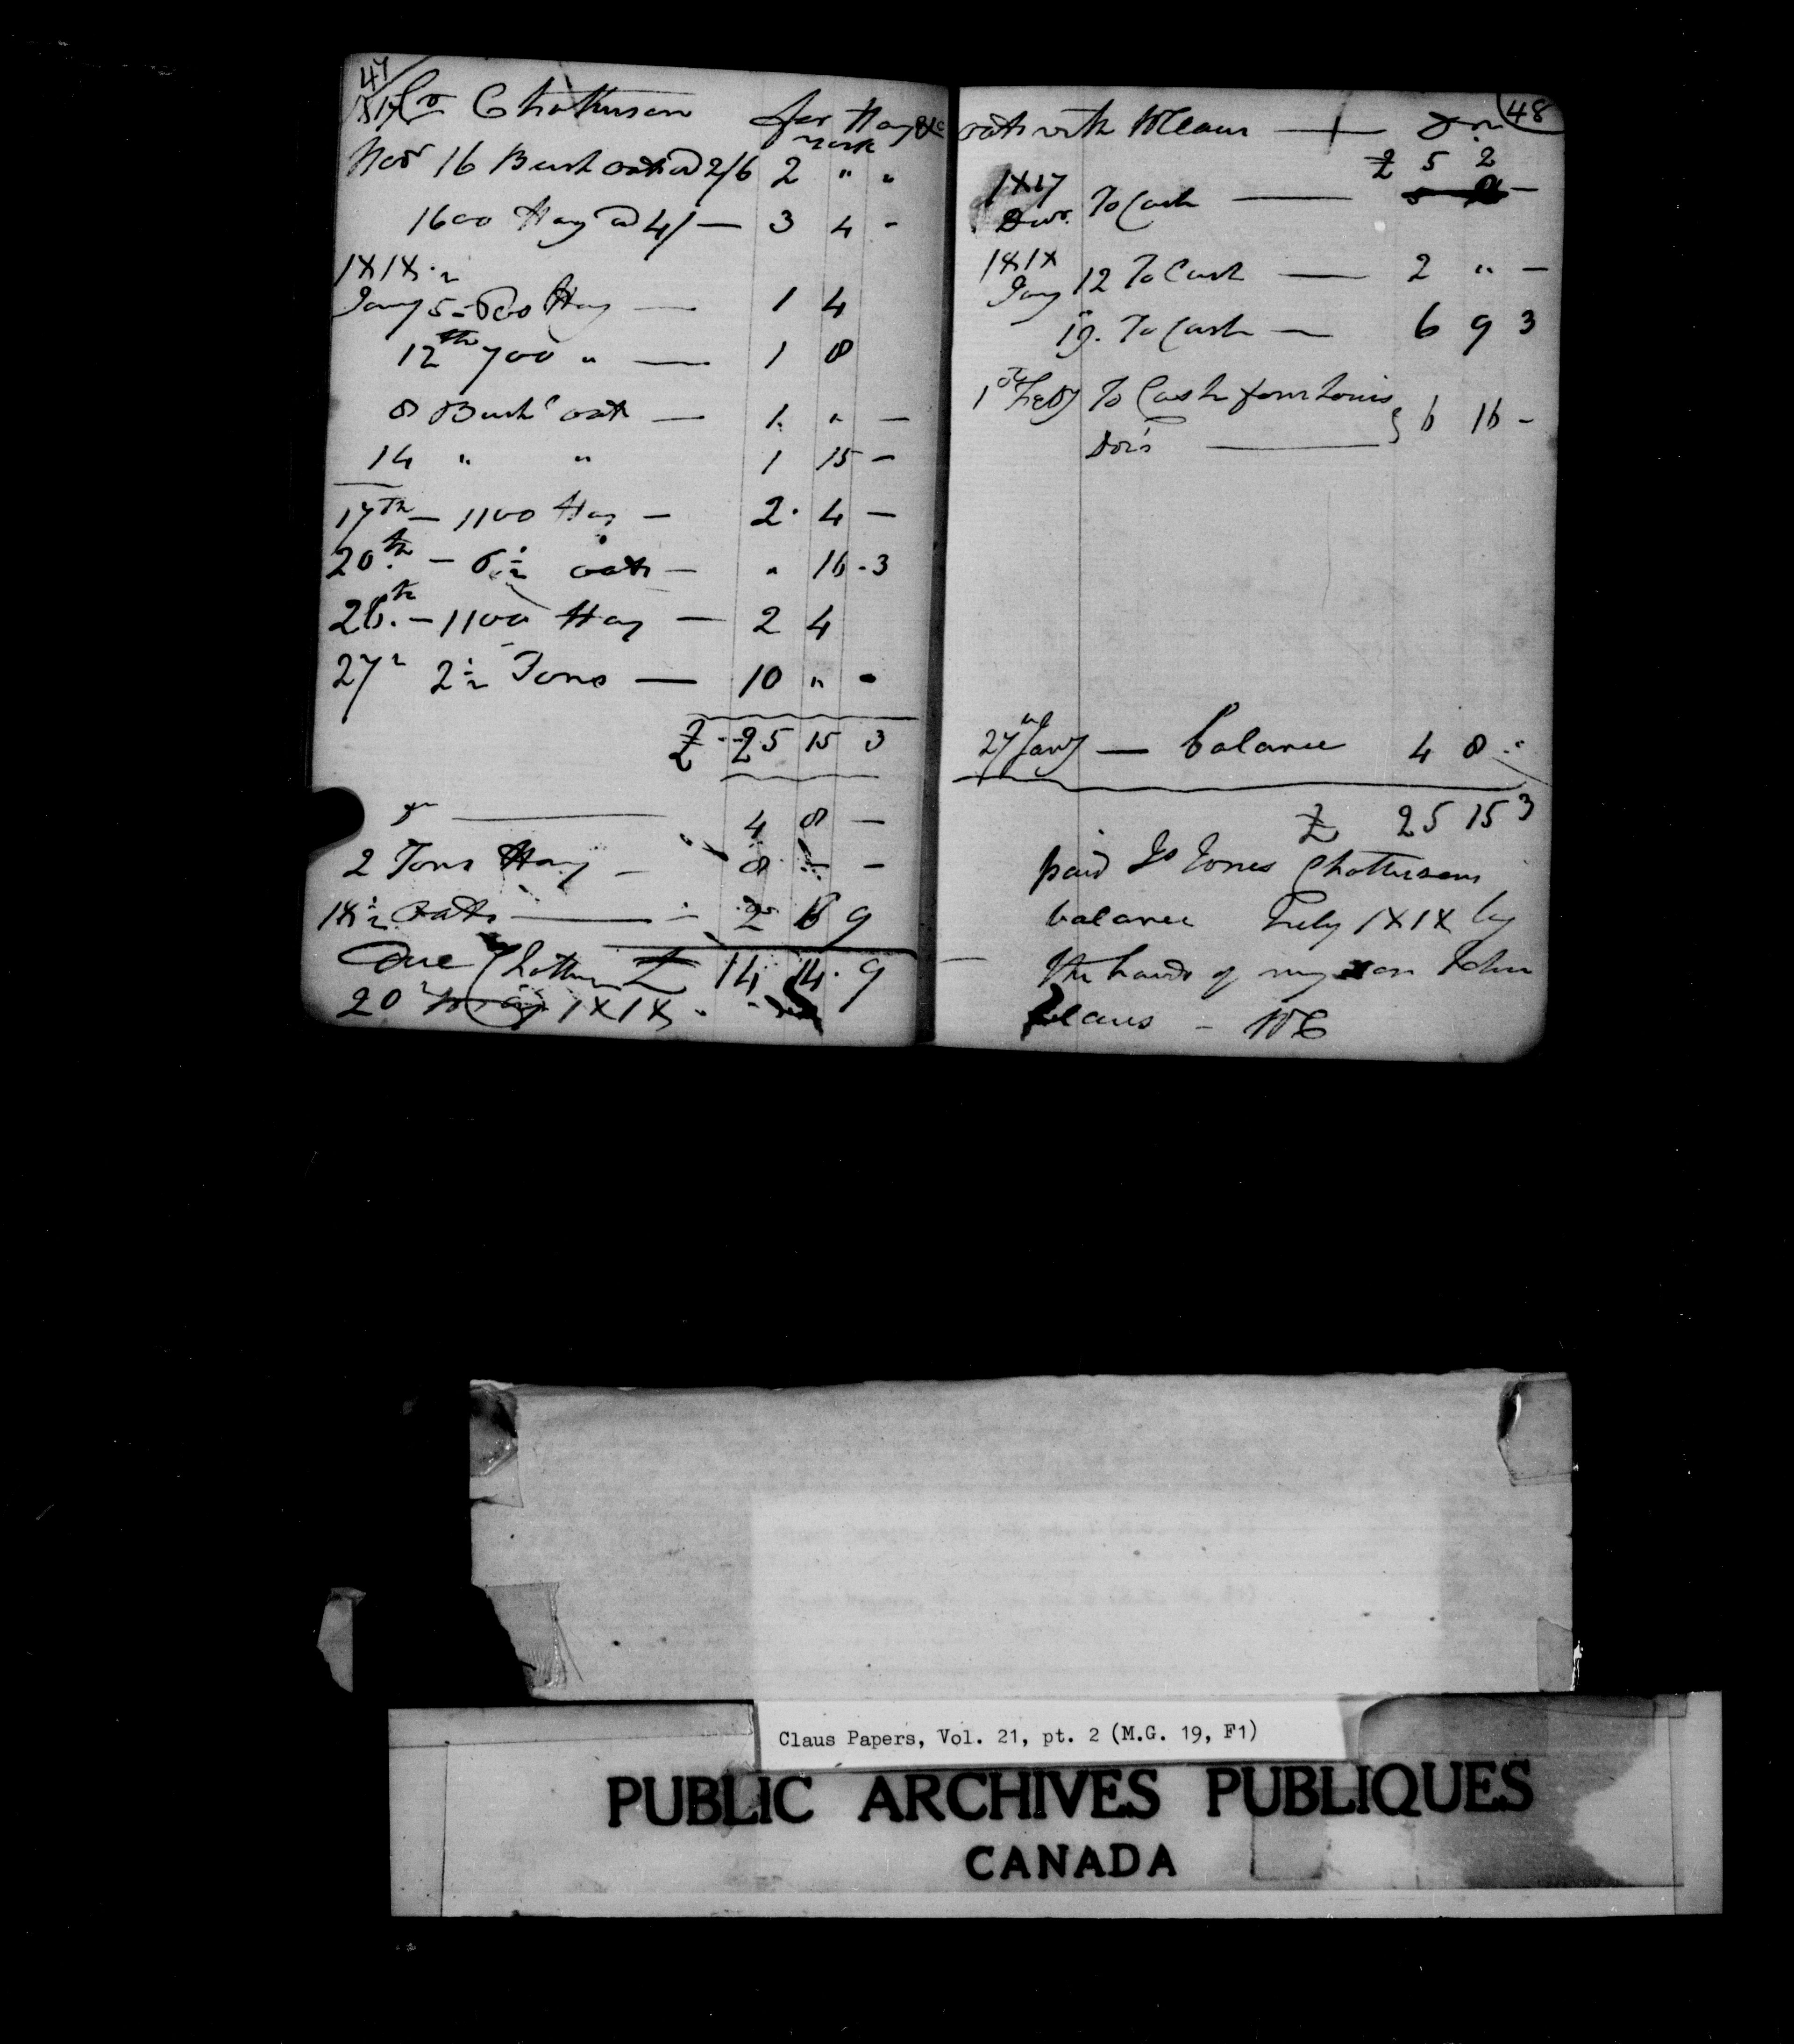 47
Cr Chatterson for Hay &c
York
Novr 16 Bush oats a 2/6 2 " "
1600 Hay a 4/ — 3 4 -
1818
Jany 5 - 600 Hay — 1 4
12th 700 " — 1 8
8 Bush oats — 1 " —
14 " " 1 15 —
17th — 1100 Hay — 2 4 —
20th — 6½ oats — " 16 3
26th — 1100 Hay — 2 4
27 2½ Tons — 10 " -
£ 25 15 3
4 8 —
2 Tons Hay — 8 — —
18½ Oats — 2 6 9
Due Chatterson £ 14 14 9
20 1818
48
oats with WClaus — Dr
£ 5 2
1817
Decr. To Cash — 5 —
1818
Jany 12 To Cash — 2 " —
19. To Cash — 6 9 3
1st Feby To Cash four Louis
Dors — 6 16 -
27 Jany — balance 4 8 "
£ 25 15 3
paid Jones Chatterson
balance July 1818 by
the hands of my son John
Claus — WC
Claus Papers, Vol. 21, pt. 2 (M.G. 19, F1)
PUBLIC ARCHIVES PUBLIQUES
CANADA